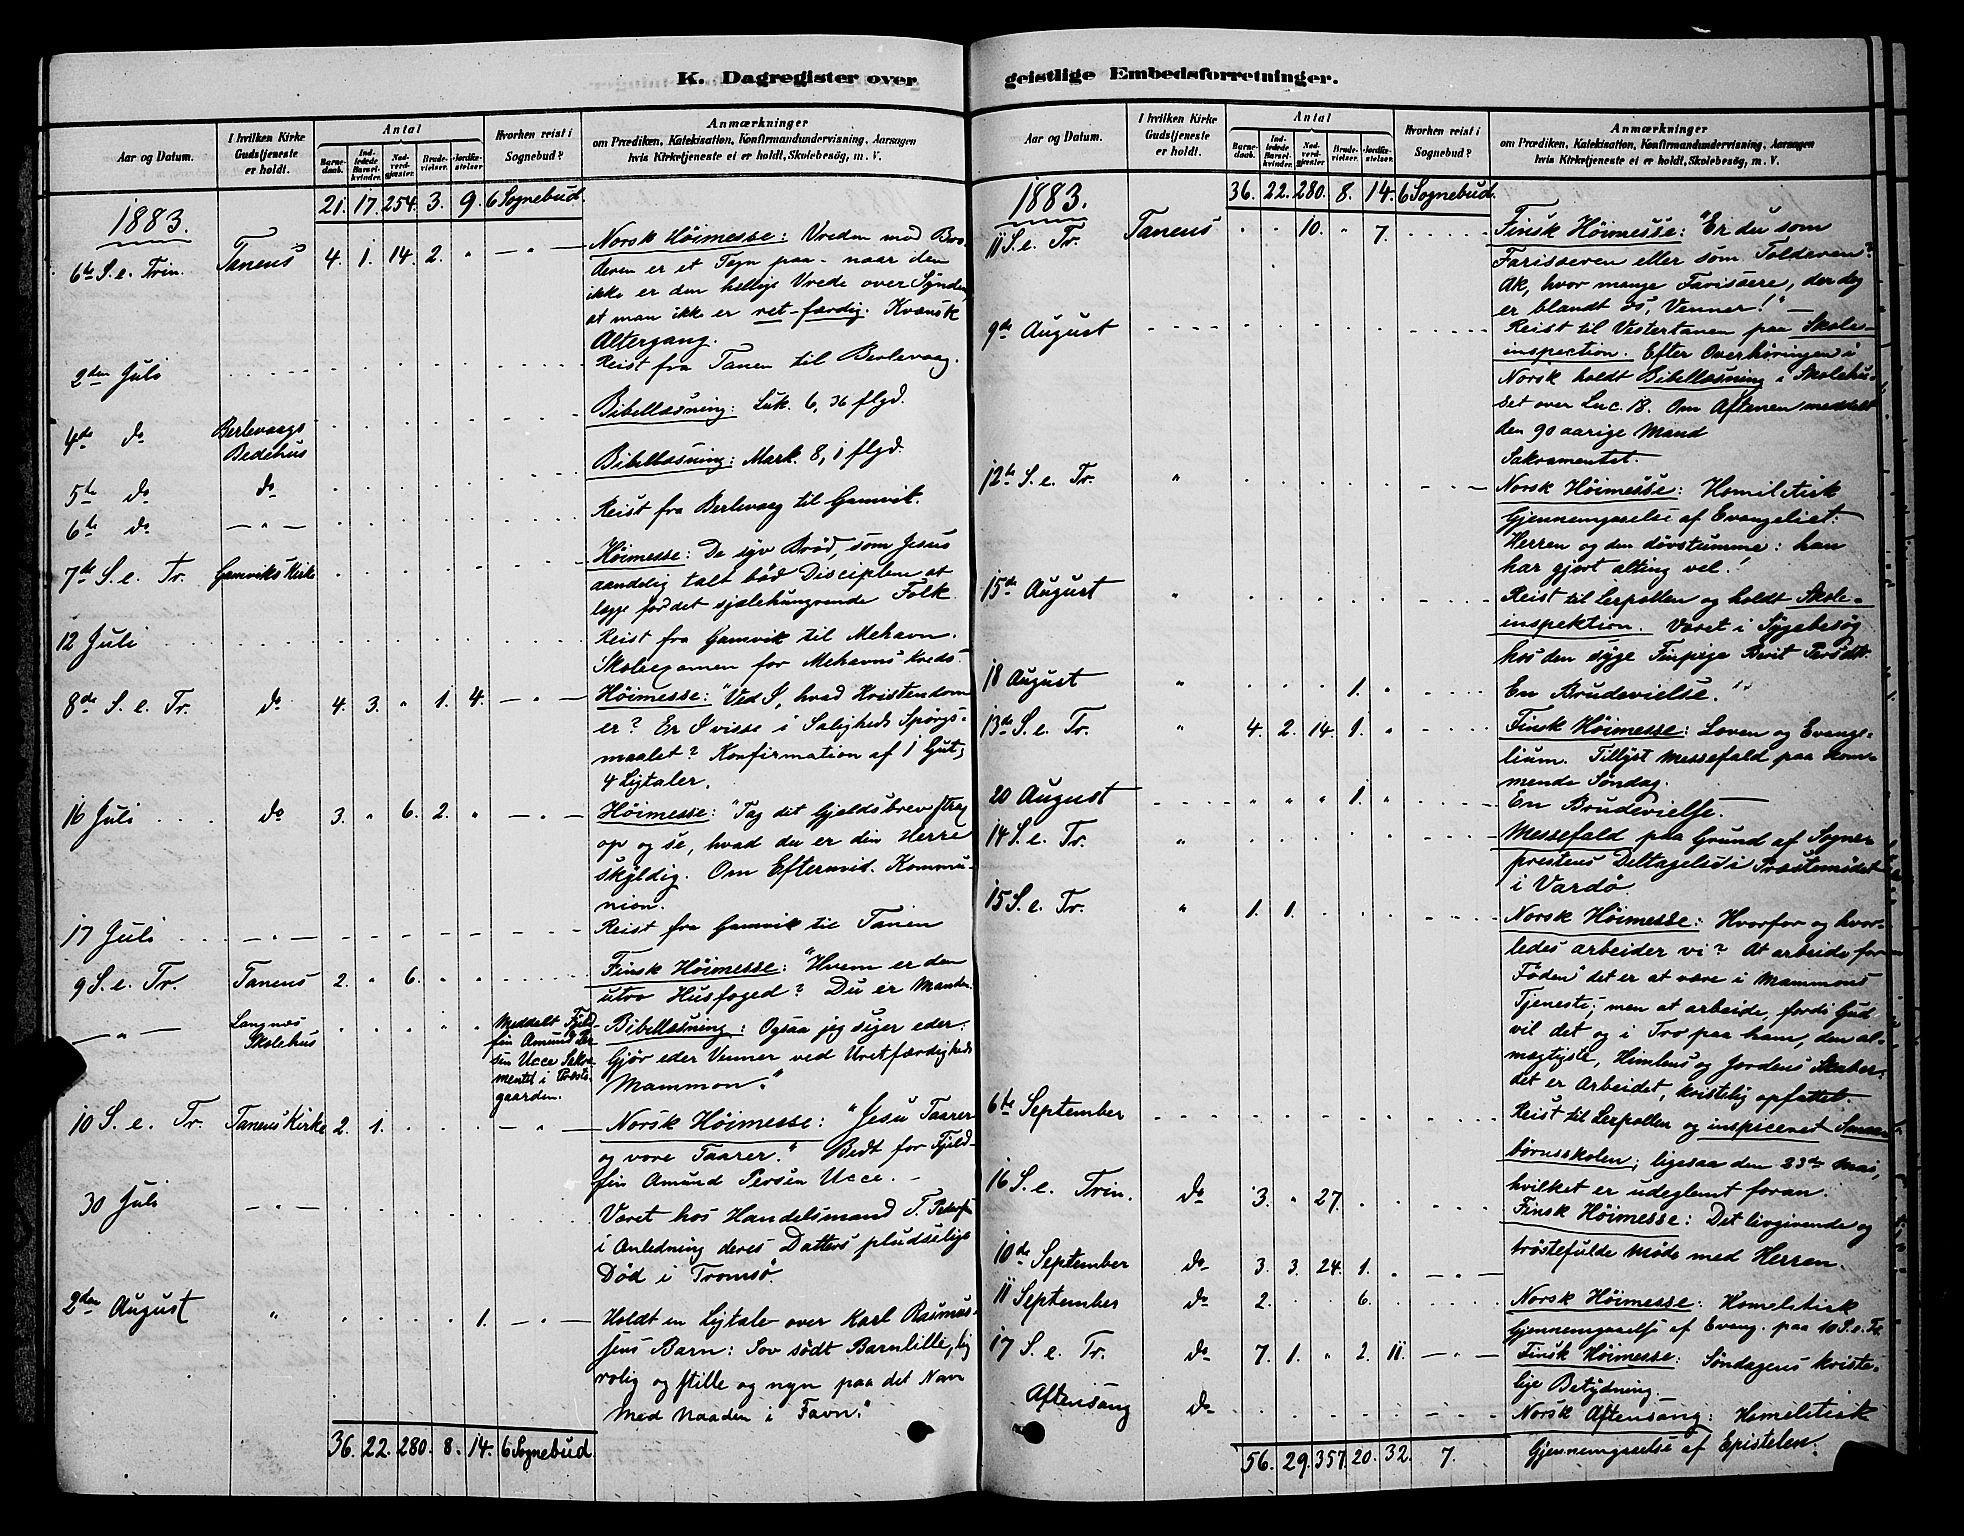 K. Dagregister over
Aar og Datum.
I hvilken Kirke Gudstjeneste er holdt.
Antal
Barnedaab. Indledede Barselkvinder. Nadverdgjæster. Brudevielser. Jordfæstelser.
Hvorhen reist i Sognebud?
Anmærkninger
om Prædiken, Katekisation, Konfirmandundervisning, Aarsagen
hvis Kirketjeneste ei er holdt, Skolebesøg, m. V.
21. 17. 254. 3. 9. 6 Sognebud.
1883.
6te S. e. Trin. Tanens 4. 1. 14. 2. " — " — Norsk Høimesse: Vreden mod Bro-
deren er et Tegn paa - naar den
ikke er den hellige Vrede over Synden,
at man ikke er ret-færdig. Kvænsk
Altergang.
2den Juli Reist fra Tanen til Berlevaag.
4de do Berlevaags Bedehus Bibellæsning: Luk. 6, 36 flgd.
5te do do Bibellæsning: Mark. 8, 1 flgd.
6te do — " — Reist fra Berlevaag til Gamvik.
7de S. e. Tr. Gamviks Kirke Høimesse: De syv Brød, som Jesus
aandelig talt bød Disciplen at
lægge for det sjælehungrende Folk.
12 Juli Reist fra Gamvik til Mehavn.
Skoleexamen for Mehavns Kreds.
8de S. e. Tr. do 4. 3. " 1. 4. — " — Høimesse: "Ved I, hvad Kristendom
er? Er I visse i Saligheds Spørgs-
maalet? Konfirmation af 1 Gut,
4 Ligtaler.
16 Juli do 3. " 6. 2. " — " — Høimesse: "Tag dit Gjeldsbrev strax
op og se, hvad du er din Herre
skyldig. Om Eftermid. Kommu-
nion.
17 Juli — " — Reist fra Gamvik til Tanen
9 S. e. Tr. Tanens 2. " 6. " " Finsk Høimesse: "Hvem er den
utro Husfoged? Du er Manden.
— " — Langnæs Skolehus Meddelt Fjeld-
fin Amund Per-
sen Ucce Sakra-
mentet i Præste-
gaarden.
Bibellæsning: Ogsaa jeg siger eder:
Gjør eder Venner ved Uretfærdigheds
Mammon."
10 S. e. Tr. Tanens Kirke 2. 1. — " — Norsk Høimesse: "Jesu Taarer
og vore Taarer." Bedt for Fjeld-
fin Amund Persen Ucce. —
30 Juli — " — Været hos Handelsmand
i Anledning deres Datters pludselige
Død i Tromsø.
2den August " 1. — " — Holdt en Ligtale over Karl Rasmus-
sens Barn: Sov sødt Barnlille, lig
rolig og stille og nyn paa det Navn
med Naaden i Favn."
36. 22. 280. 8. 14. 6 Sognebud
geistlige Embedsforretninger.
Aar og Datum.
I hvilken Kirke Gudstjeneste er holdt.
Antal
Barnedaab. Indledede Barselkvinder. Nadverdgjæster. Brudevielser. Jordfæstelser.
Hvorhen reist i Sognebud?
Anmærkninger
om Prædiken, Katekisation, Konfirmandundervisning, Aarsagen
hvis Kirketjeneste ei er holdt, Skolebesøg, m. V.
36. 22. 280. 8. 14. 6 Sognebud.
1883.
11 S. e. Tr. Tanens " " 10. " 7. Finsk Høimesse: "Er du som
Farisseren eller som Tolderen?
Ak, hvor mange Farissere, der dog
er blandt os, Venner!" —
9de August Reist til Vestertanen paa Skole-
inspection. Efter Overhøringen i
Norsk holdt Bibellæsning i Skolehu-
set over Luc. 18. Om Aftenen meddelt
den 90 aarige Mand
Sakramentet.
12te S. e. Tr. " Norsk Høimesse: Homiletisk
Gjennemgaaelse af Evangeliet:
Herren og den døvstumme: han
har gjort alting vel!
15de August " Reist til Lerpollen og holdt Skole-
inspektion. Været i Sygebesøg
hos den syge Finpige Berit Persdtr.
18 August " 1. " En Brudevielse.
13de S. e. Tr. " 4. 2. 14. 1. " Finsk Høimesse: Loven og Evange-
lium. Tillyst Messefald paa kom-
mende Søndag.
20 August " " " 1. " En Brudevielse.
14 S. e. Tr. " Messefald paa Grund af Sogne-
prestens Deltagelse i Præstemødet
i Vardø.
15 S. e. Tr. " 1. 1. Norsk Høimesse: Hvorfor og hvor-
ledes arbeider vi? At arbeide for
Føden" det er at være i Mammons
Tjeneste; men at arbeide, fordi Gud
vil det og i Tro paa ham, den al-
mægtigste, Himlens og Jordens Skaber:
det er Arbeidet, kristelig opfattet.
6te September Reist til Lerpollen og inspiceret Smaa-
børnsskolen; ligesaa den 23de Mai,
hvilket er udeglemt foran.
16 S. e. Trin. do 3. " 27. Finsk Høimesse: Det livgivende og
trøstefulde Møde med Herren.
10de September do 3. 3. 24. 1. " — " —
11 September do 2. 6. Norsk Høimesse: Homeletisk
Gjennemgaaelse af Evang. paa 10 S. e. Tr.
17 S. e. Tr. do 7. 1. " 2. 11. — " — Finsk Høimesse: Søndagens kriste-
lige Betydning.
Aftensang do Norsk Aftensang: Homeletisk
Gjennemgaaelse af Epistelen.
56. 29. 357. 20. 32. 7.